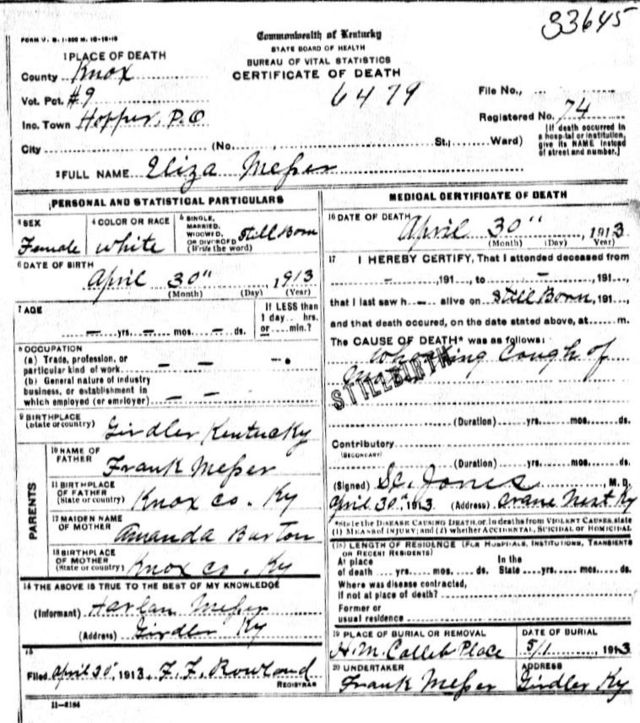 33645
FORM V. S. 1-200 M. 10-18-10
Commonwealth of Kentucky
STATE BOARD OF HEALTH
BUREAU OF VITAL STATISTICS
CERTIFICATE OF DEATH
1 PLACE OF DEATH
County Knox
Vot. Pct. #9
Inc. Town Hopper, P.O
City (No. St.; Ward)
6479
File No.
Registered No. 74
[If death occurred in a hospital or institution, give its NAME instead of street and number.]
2 FULL NAME Eliza Messer
PERSONAL AND STATISTICAL PARTICULARS
3 SEX Female
4 COLOR OR RACE White
5 SINGLE, MARRIED, WIDOWED, OR DIVORCED (Write the word) Still Born
6 DATE OF BIRTH
April 30" 1913
(Month) (Day) (Year)
7 AGE
If LESS than 1 day .. hrs. or .... min.?
— yrs. — mos. — ds.
8 OCCUPATION
(a) Trade, profession, or particular kind of work — —
(b) General nature of industry business, or establishment in which employed (or employer) — —
9 BIRTHPLACE (State or country) Girdler Kentucky
PARENTS
10 NAME OF FATHER Frank Messer
11 BIRTHPLACE OF FATHER (State or country) Knox co. Ky
12 MAIDEN NAME OF MOTHER Amanda Burton
13 BIRTHPLACE OF MOTHER (State or country) Knox co. Ky
14 THE ABOVE IS TRUE TO THE BEST OF MY KNOWLEDGE
(Informant) Harlan Messer
(Address) Girdler Ky
15
Filed April 30", 1913. F. F. Rowland
REGISTRAR
11—2184
MEDICAL CERTIFICATE OF DEATH
16 DATE OF DEATH April 30", 1913
(Month) (Day) (Year)
17 I HEREBY CERTIFY, That I attended deceased from
—, 191 , to —, 191 ,
that I last saw h — alive on Still Born, 191 ,
and that death occured, on the date stated above, at m.
The CAUSE OF DEATH* was as follows:
Whooping Cough of
STILLBIRTH
(Duration) yrs. mos. ds.
Contributory
(SECONDARY)
(Duration) yrs. mos. ds.
(Signed) Jones, M. D.
April 30", 1913 (Address) Crane Nest Ky
*State the DISEASE CAUSING DEATH, or, in deaths from VIOLENT CAUSES, state (1) MEANS OF INJURY; and (2) whether ACCIDENTAL, SUICIDAL or HOMICIDAL
18 LENGTH OF RESIDENCE (FOR HOSPITALS, INSTITUTIONS, TRANSIENTS OR RECENT RESIDENTS)
At place of death yrs. mos. ds. In the State yrs. mos. ds.
Where was disease contracted, if not at place of death?
Former or usual residence
19 PLACE OF BURIAL OR REMOVAL H. M. Calleb Place
DATE OF BURIAL 5/1, 1913
20 UNDERTAKER Frank Messer
ADDRESS Girdler Ky